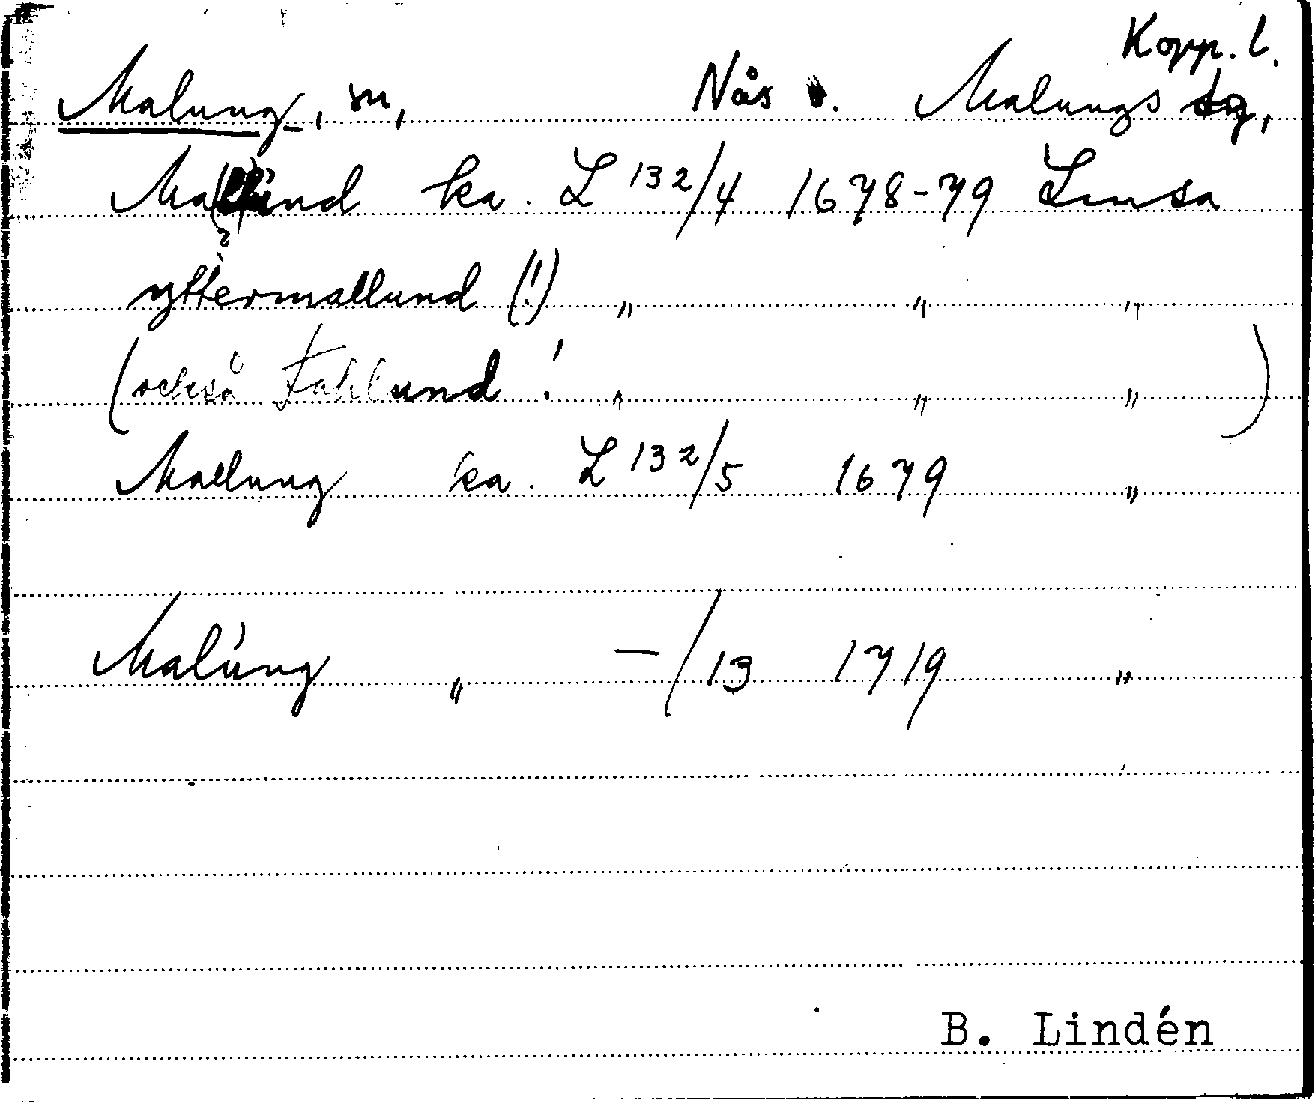 Kopp. l.
Malung, m, Nås s. Malungs tg,
Ma(ll)und ka. L 132/4 1678-79 Lmsa
?
yttermallund (!) " " "
(också Fahlund ! " " " )
Mallung ka. L 132/5 1679 "
Malúng " — /13 1719 "
B. Lindén